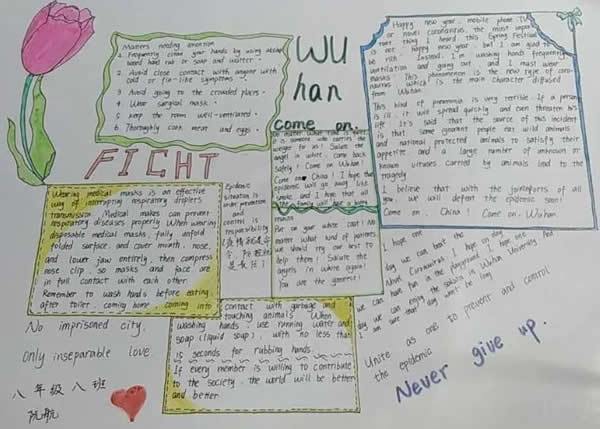 Matters needing attention
1. Frequently clean your hands by using alcohol
based hand rub or soap and water.
2. Avoid close contact with anyone with
cold or flu-like symptoms.
3. Avoid going to the crowded places.
4. Wear surgical mask.
5. keep the room well-ventilated.
6. Thoroughly cook meat and eggs.
WU
han
come on
FIGHT
Happy new year, mobile phone, TV
or novel coronavirus, the most
thing I heard this Spring Festival
is not happy new year but I am glad to
be rich. Instead, I'm washing hands frequently
ventilation and going out, and I must wear
masks. This phenomenon is the new type of
which is the main character diffused
from Wuhan.
This kind of pneumonia is very terrible. If a person
is ill, it will spread quickly and even threaten his
life. It's said that the source of this incident
is that some ignorant people eat wild animals
and national protected animals to satisfy their
appetite and a large number of unknown or
known viruses carried by animals lead to the
tragedy.
I believe that with the joint efforts of all
of you, we will defeat the epidemic soon!
Come on, China! Come on, Wuhan.
No matter what time is
it is someone who carries the
weight for us! Salute the
angel in white, come back
safely! Come on Wuhan!
Come on China! I hope the
epidemic will go away like
smoke, and I hope that all
the will have a happy
reunion
Put on your white coat! No
matter what kind of patients
we should try our best to
help them! Salute the
angels in white again!
You are the general!
Wearing medical masks is an effective
way of interrupting respiratory droplets
transmission. Medical makes can prevent
respiratory diseases properly. When wearing
disposable medical masks, fully unfold
folded surface, and cover mouth, nose,
and lower jaw entirely, then compress
nose clip, so masks and face are
in full contact with each other.
Remember to wash hands before eating,
after toilet, coming home, coming into
contact with garbage and
touching animals. When
washing hands, use running water and
soap (liquid soap), with no less than
15 seconds for rubbing hands.
If every member is willing to contribute
to the society, the world will be better
and better.
Epidemic
situation is
under prevention
and
control is
responsibility
No imprisoned city,
Only inseparable love.
八年级八班
阮航
I hope one
day we can beat the
Novel Coronavirus. I hope on day
we can have fun in the playground. I hope one
day we can enjoy the sakura in Wuhan University. And
I am sure that day won't be long
Unite as one to prevent and control
the epidemic
Never give up.